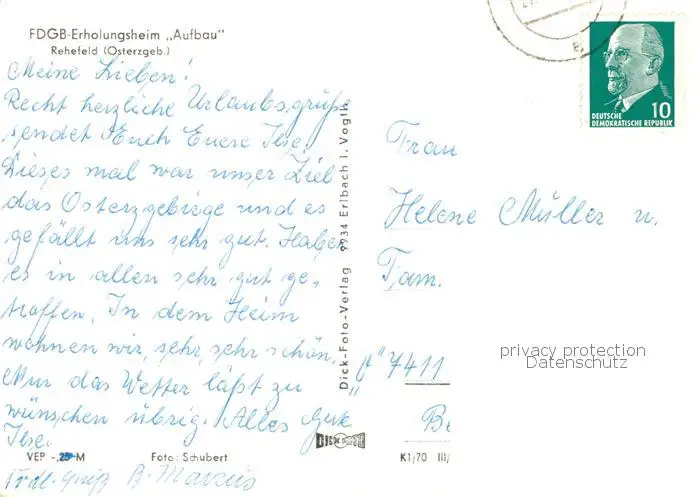 FDGB-Erholungsheim „Aufbau"
Rehefeld (Osterzgeb.)
Meine Lieben!
Recht herzliche Urlaubsgrüße
sendet Euch Euere Ilse.
Dieses mal war unser Ziel
das Osterzgebirge und es
gefällt uns sehr gut. Haben
es in allen sehr gut ge-
troffen. In dem Heim
wohnen wir, sehr, sehr schön.
Nur das Wetter läßt zu
wünschen übrig. Alles Gute
Ilse.
VEP -,25 M
Foto: Schubert
Frdl. Grüße B. Marcus
Dick-Foto-Verlag 9934 Erlbach i. Vogtl.
DICK
K1/70 III/
10
DEUTSCHE
DEMOKRATISCHE REPUBLIK
Frau
Helene Müller u.
Fam.
7411
Be
privacy protection
Datenschutz